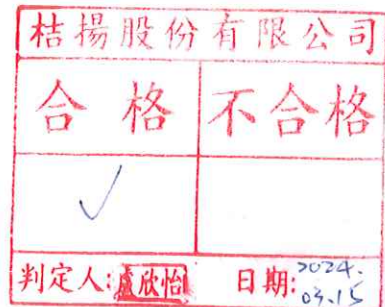 桔揚股份有限公司
合格 不合格
✓
判定人:盧欣怡 日期:2024.
03.15